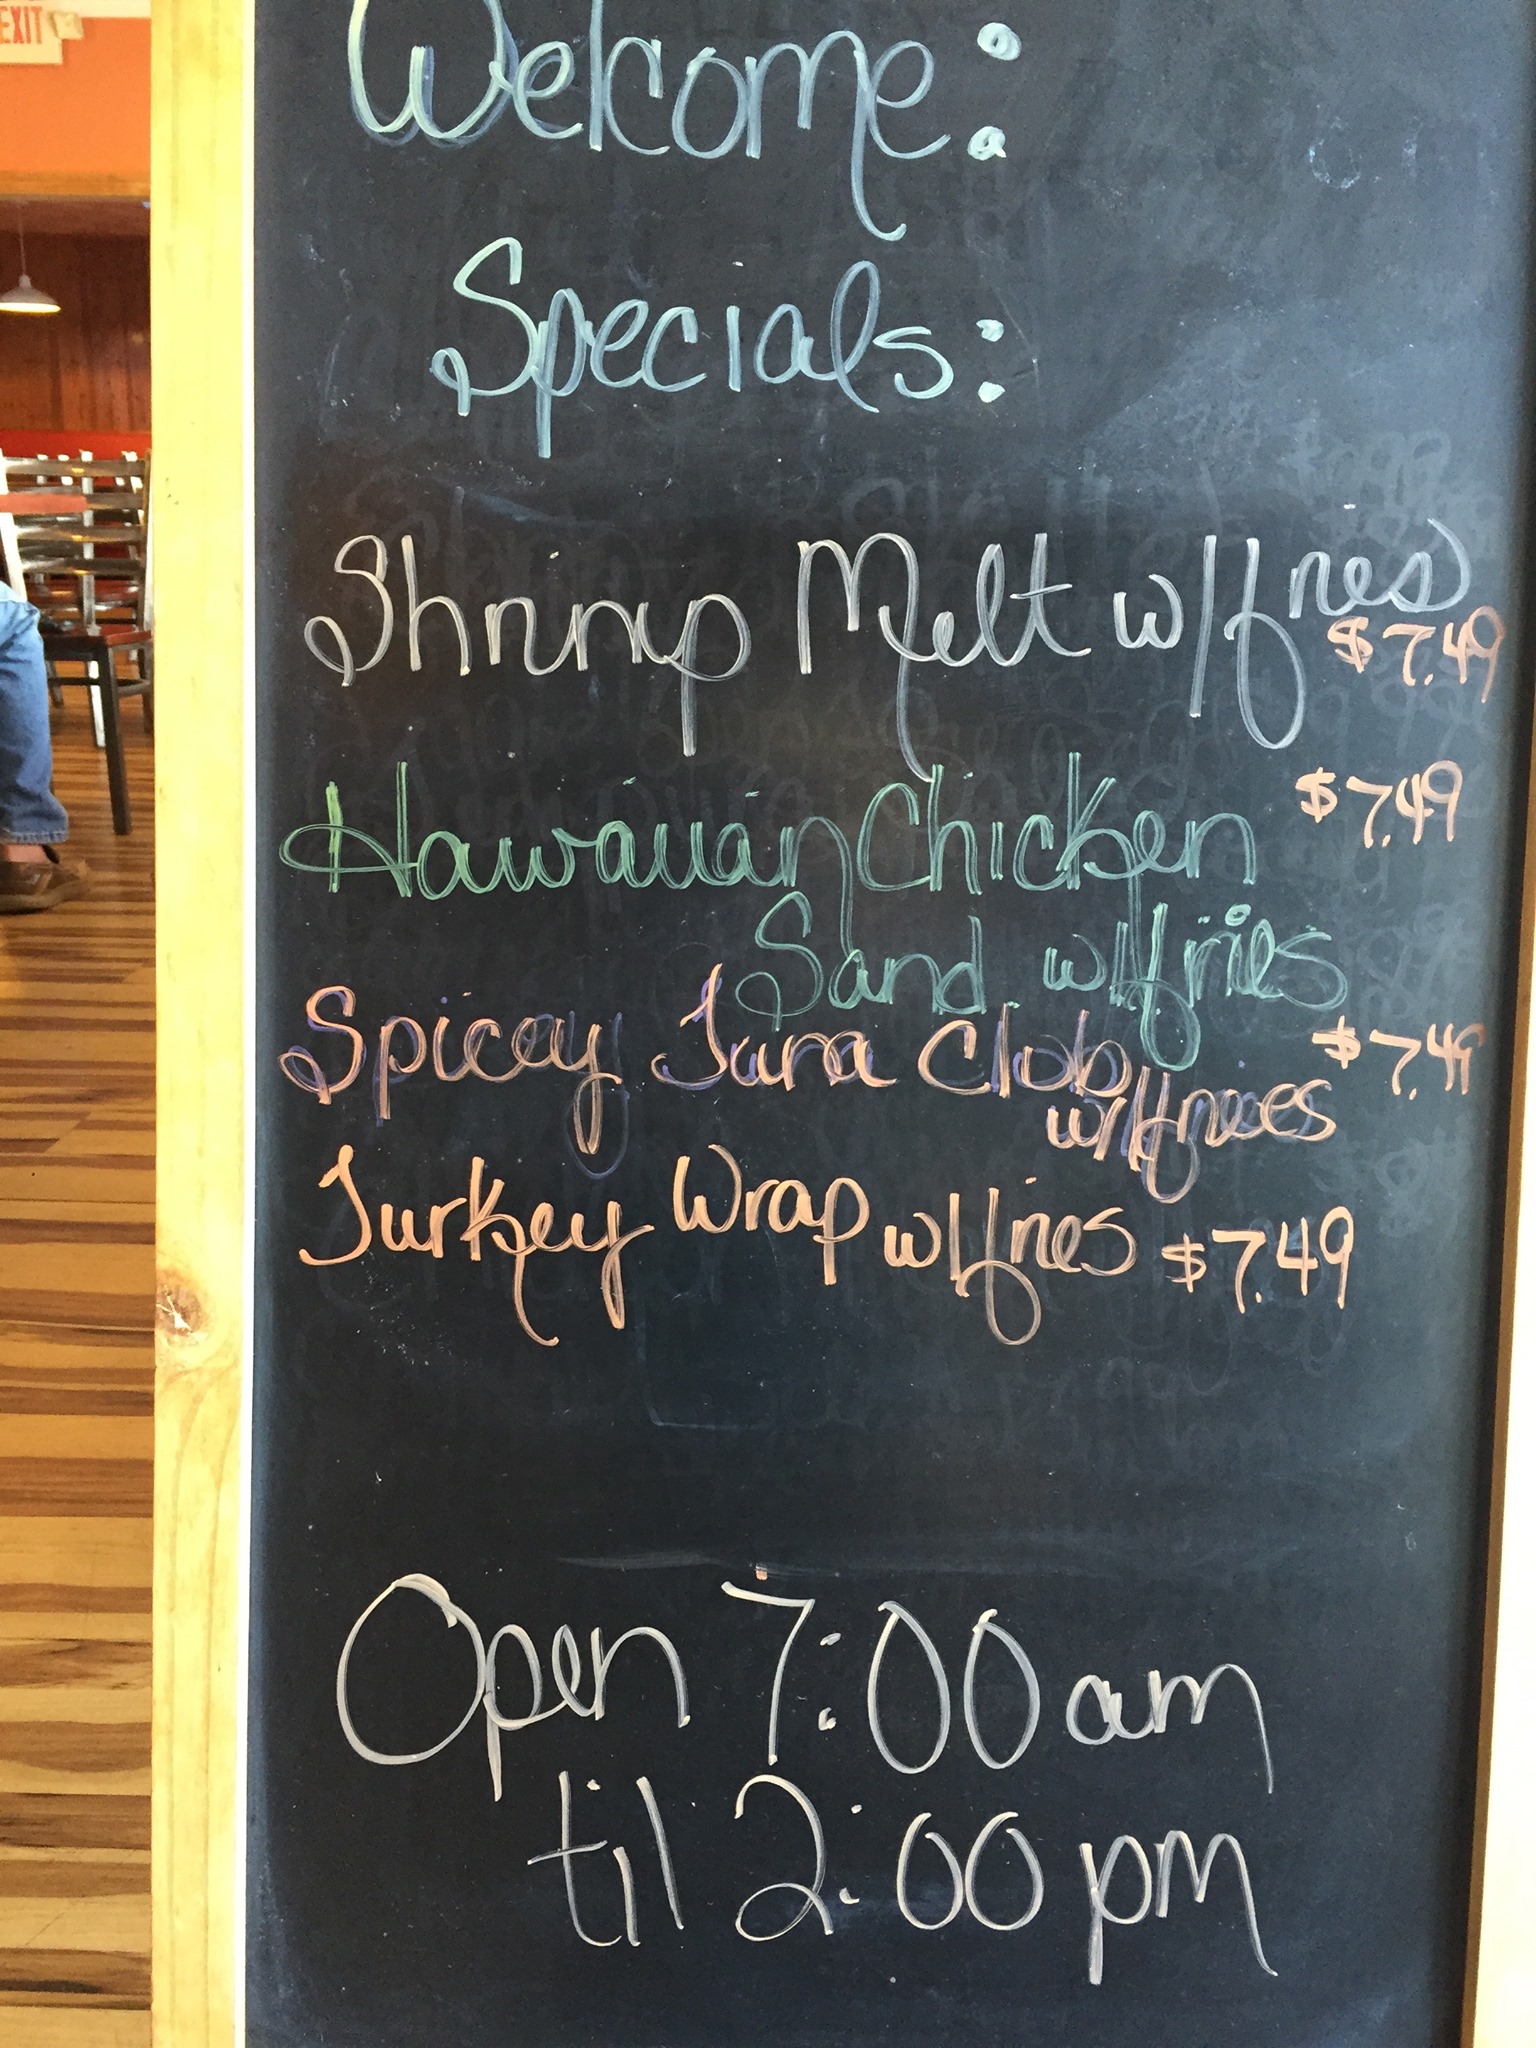 EXIT
Welcome:
Specials:
Shrimp Melt w/fries
$7.49
Hawaiian Chicken $7.49
Sand w/fries
Spicey Tuna Club $7.49
w/friees
Turkey Wrap w/fries $7.49
Open 7:00 am
til 2:00 pm